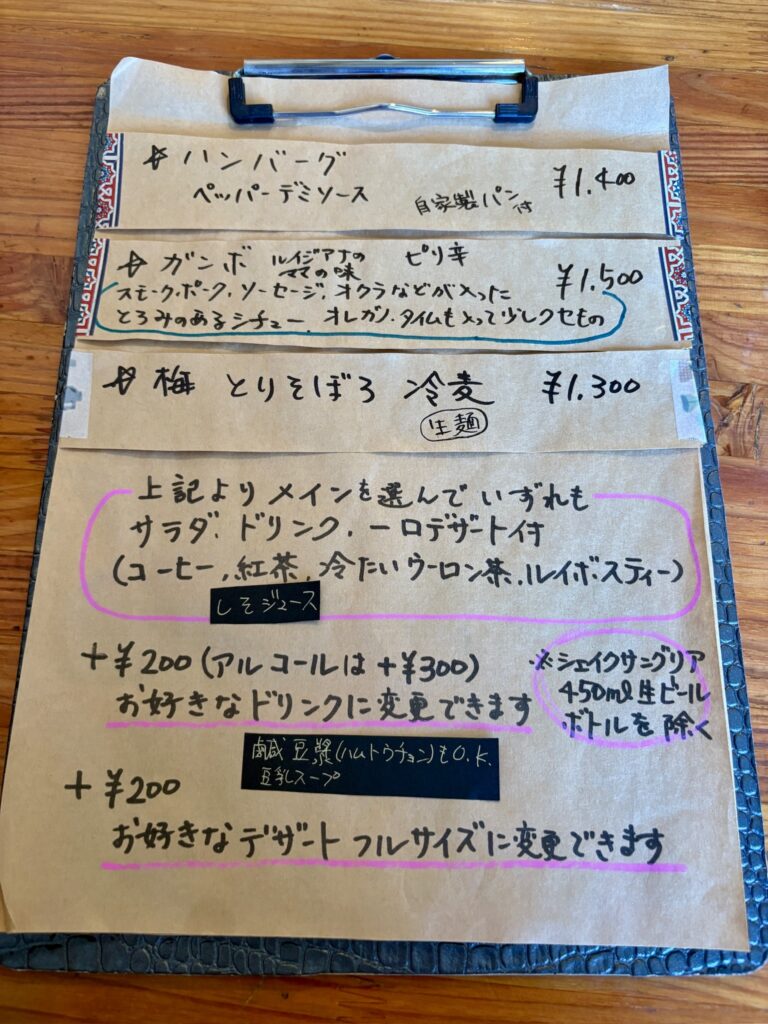 ハンバーグ
ペッパーデミソース 自家製パン付 ¥1.400
ガンボ ルイジアナの ママの味 ピリ辛 ¥1.500
スモークポーク、ソーセージ、オクラなどが入った
とろみのあるシチュー、オレガノ、タイムも入って少しクセもの
梅 とりそぼろ 冷麦 ¥1.300
生麺
上記よりメインを選んでいずれも
サラダ、ドリンク、一口デザート付
(コーヒー、紅茶、冷たいウーロン茶、ルイボスティー)
しそジュース
+¥200(アルコールは+¥300)
お好きなドリンクに変更できます
※シェイクサングリア
450ml生ビール
ボトルを除く
鹹豆漿(ハムトウチョン)もO.K.
豆乳スープ
+¥200
お好きなデザートフルサイズに変更できます